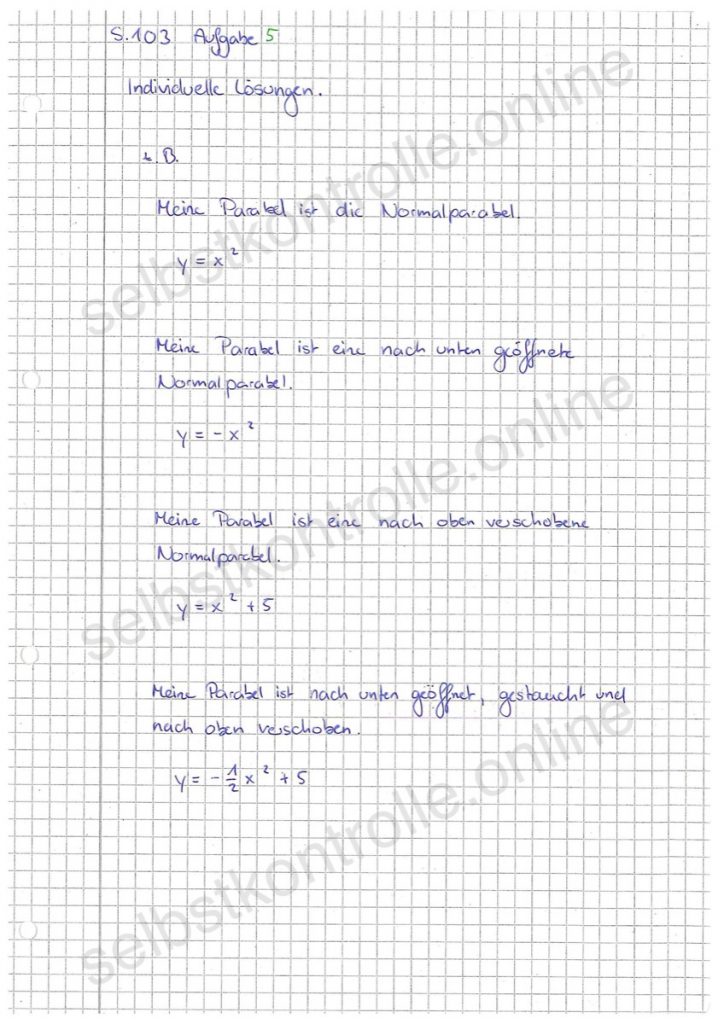 S.103 Aufgabe 5
Individuelle Lösungen.
z.B.
Meine Parabel ist die Normalparabel.
y = x²
Meine Parabel ist eine nach unten geöffnete
Normalparabel.
y = -x²
Meine Parabel ist eine nach oben verschobene
Normalparabel.
y = x² + 5
Meine Parabel ist nach unten geöffnet, gestaucht und
nach oben verschoben.
y = -1/2 x² + 5
selbstkontrolle.online
selbstkontrolle.online
selbstkontrolle.online